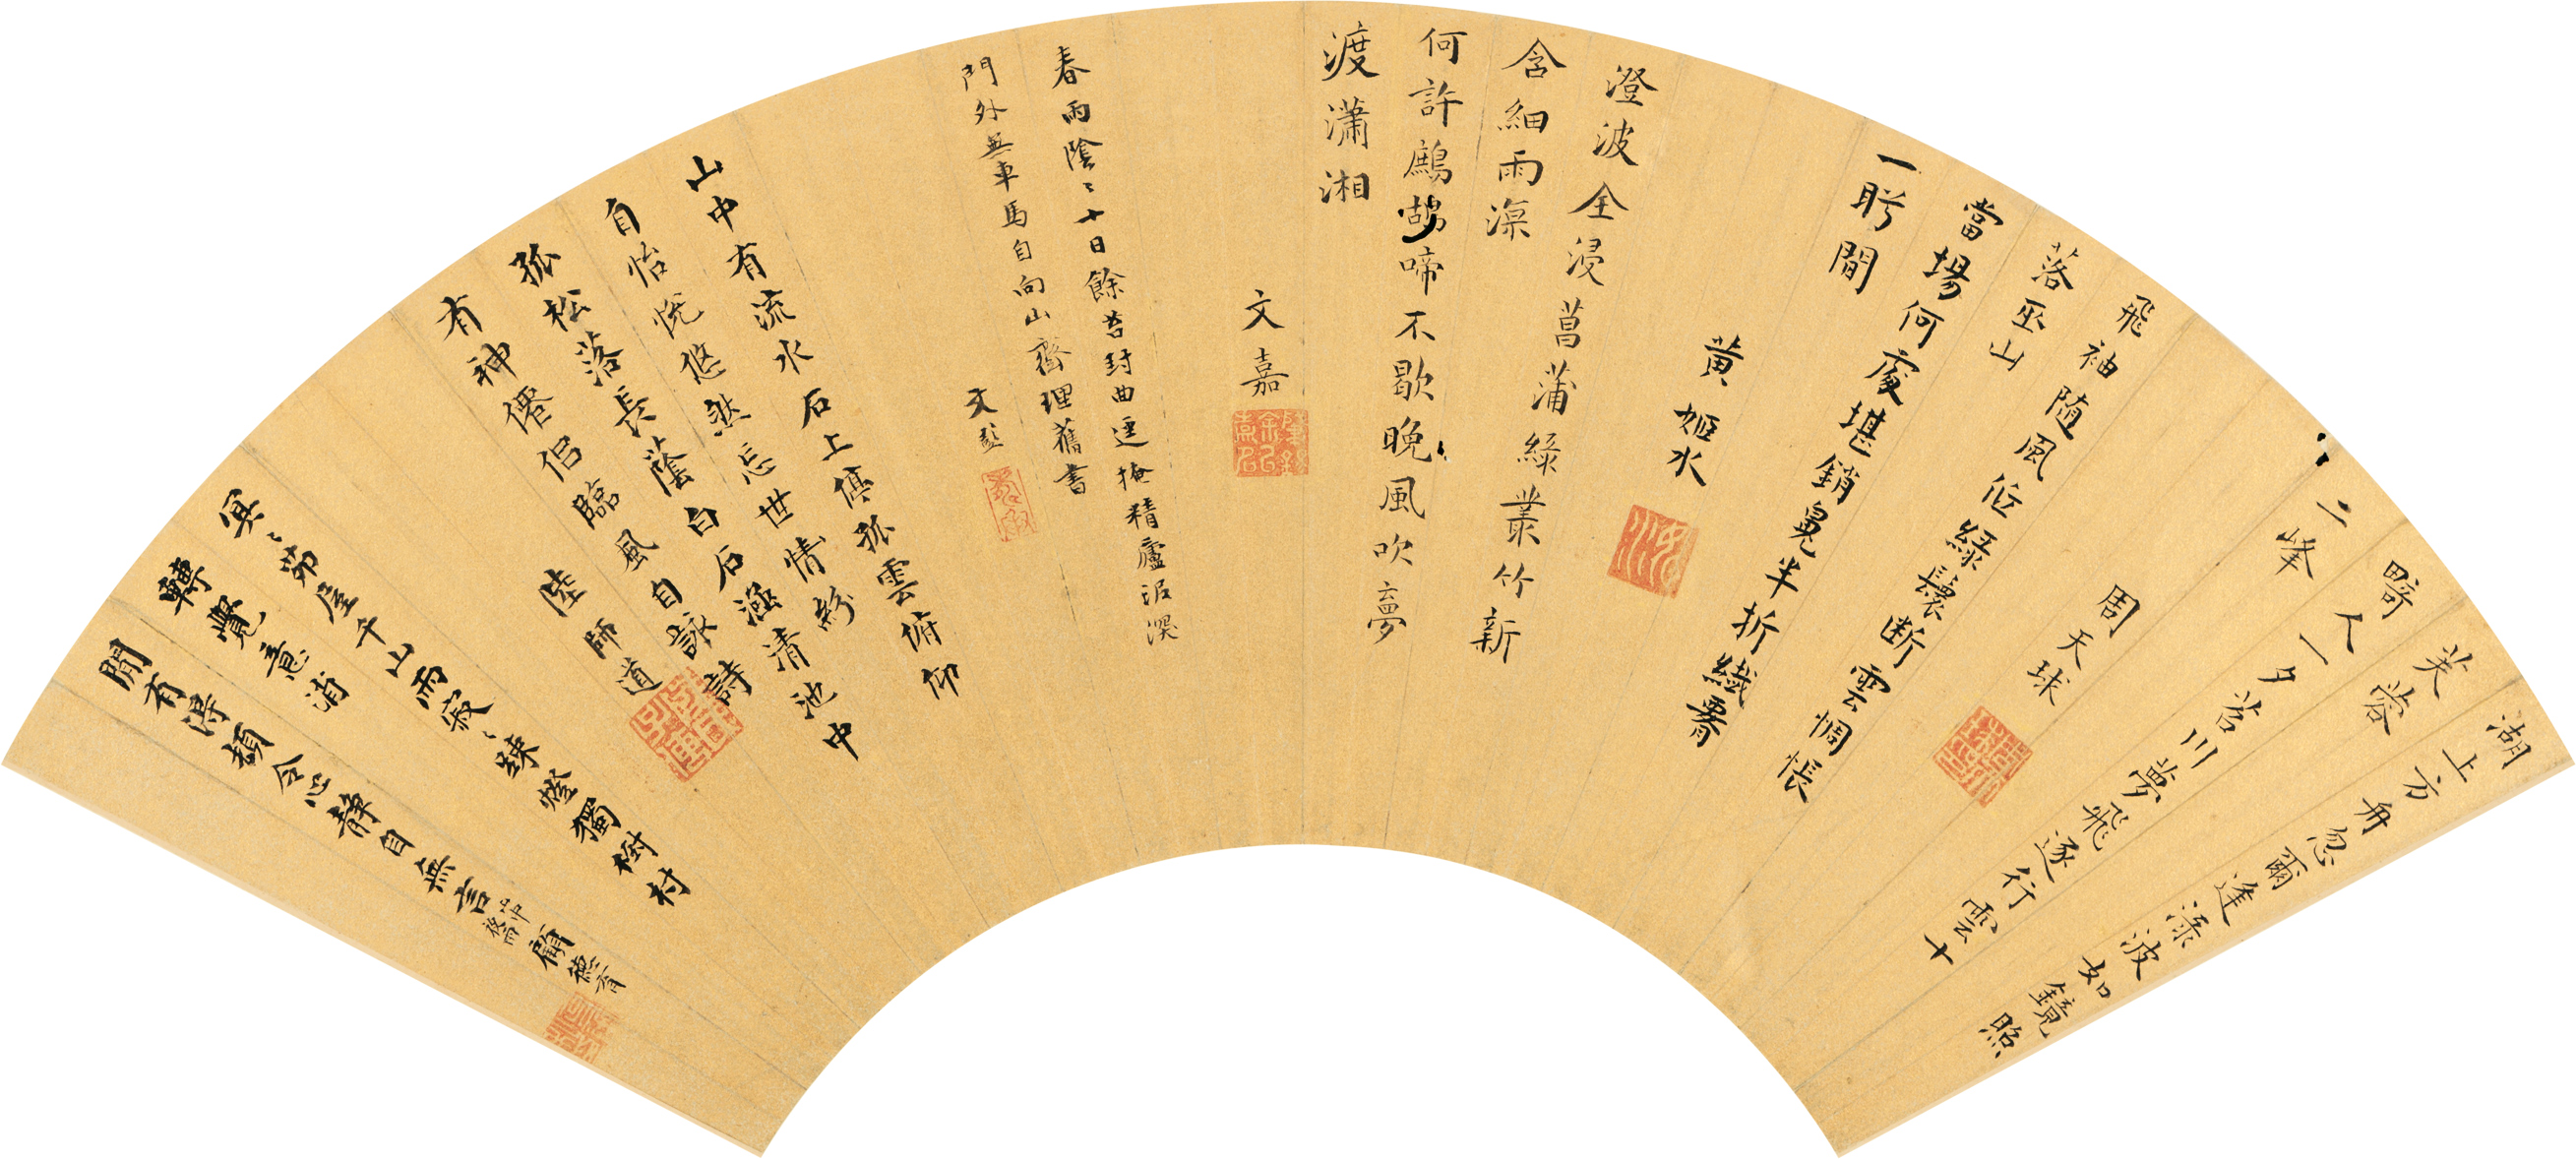 湖上方舟忽爾逢渌波如鏡照
芙蓉
畸人一夕苕川夢飛逐行雲十
二峰
周天球
飛袖随風低綠鬟断雲惆悵
落巫山
當場何處堪銷鬼半折纖署
一盻間
黄姬水
澄波全浸菖蒲綠叢竹新
含細雨凉
何許鷓鴣啼不歇晚風吹夢
渡瀟湘
文嘉
春雨陰〻十日餘苔封曲逕掩精廬泥深
門外無車馬自向山齋理舊書
文彭
山中有流水石上俱孤雲俯仰
自怡悦悠然忘世情紛
孤松落長蔭白石涵清池中
有神僊侣臨風自詠詩
陸師道
冥〻茆屋千山雨寂〻踈燈獨樹村
轉覺意消
閒有得頓令心静自無言
山中夜雨
顧德育